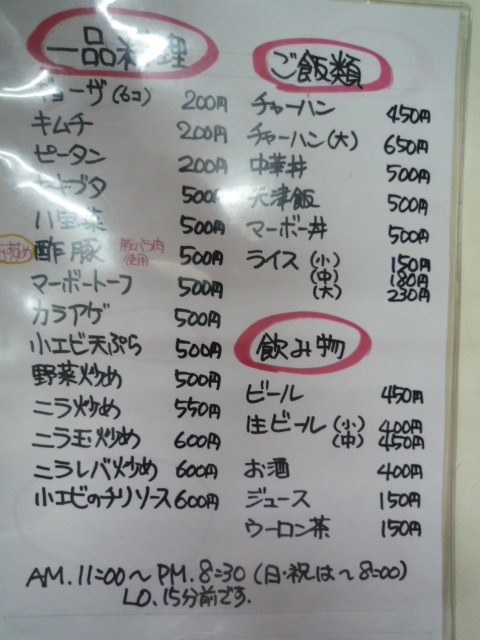 一品料理
ギョーザ(6コ) 200円
キムチ 200円
ピータン 200円
ヤキブタ 500円
八宝菜 500円
酢豚 豚バラ肉使用 500円
マーボートーフ 500円
カラアゲ 500円
小エビ天ぷら 500円
野菜炒め 500円
ニラ炒め 550円
ニラ玉炒め 600円
ニラレバ炒め 600円
小エビのチリソース 600円
ご飯類
チャーハン 450円
チャーハン(大) 650円
中華丼 500円
天津飯 500円
マーボー丼 500円
ライス(小) 150円
(中) 180円
(大) 230円
飲み物
ビール 450円
生ビール(小) 400円
(中) 450円
お酒 400円
ジュース 150円
ウーロン茶 150円
AM.11:00〜PM.8:30(日・祝は〜8:00)
LO.15分前です.